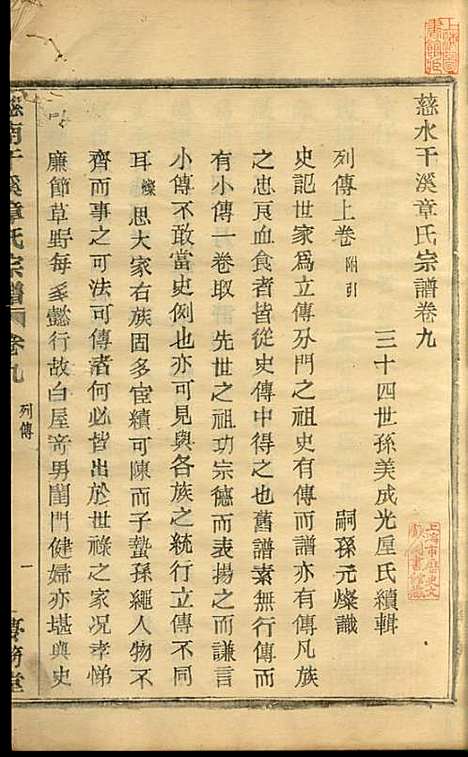 慈水干溪章氏宗譜卷九
三十四世孫美成光垕氏續輯
列傳上卷 附引
嗣孫元燦識
史記世家爲立傳分門之祖史有傳而譜亦有傳凡族
之忠良血食者皆從史傳中得之也舊譜素無行傳而
有小傳一卷取 先世之祖功宗德而表揚之而謙言
小傳不敢當史例也亦可見與各族之統行立傳不同
耳燦思大家右族固多宦績可陳而子蟄孫繩人物不
齊而事之可法可傳者何必皆出於世祿之家況孝悌
廉節草野每多懿行故白屋奇男閨門健婦亦堪與史
慈南干溪章氏宗譜
卷九
列傳
一